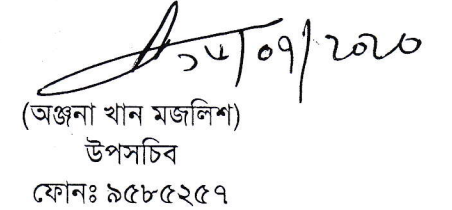 ১৫/০৭/২০২০
(অঞ্জনা খান মজলিশ)
উপসচিব
ফোনঃ ৯৫৮৫২৫৭